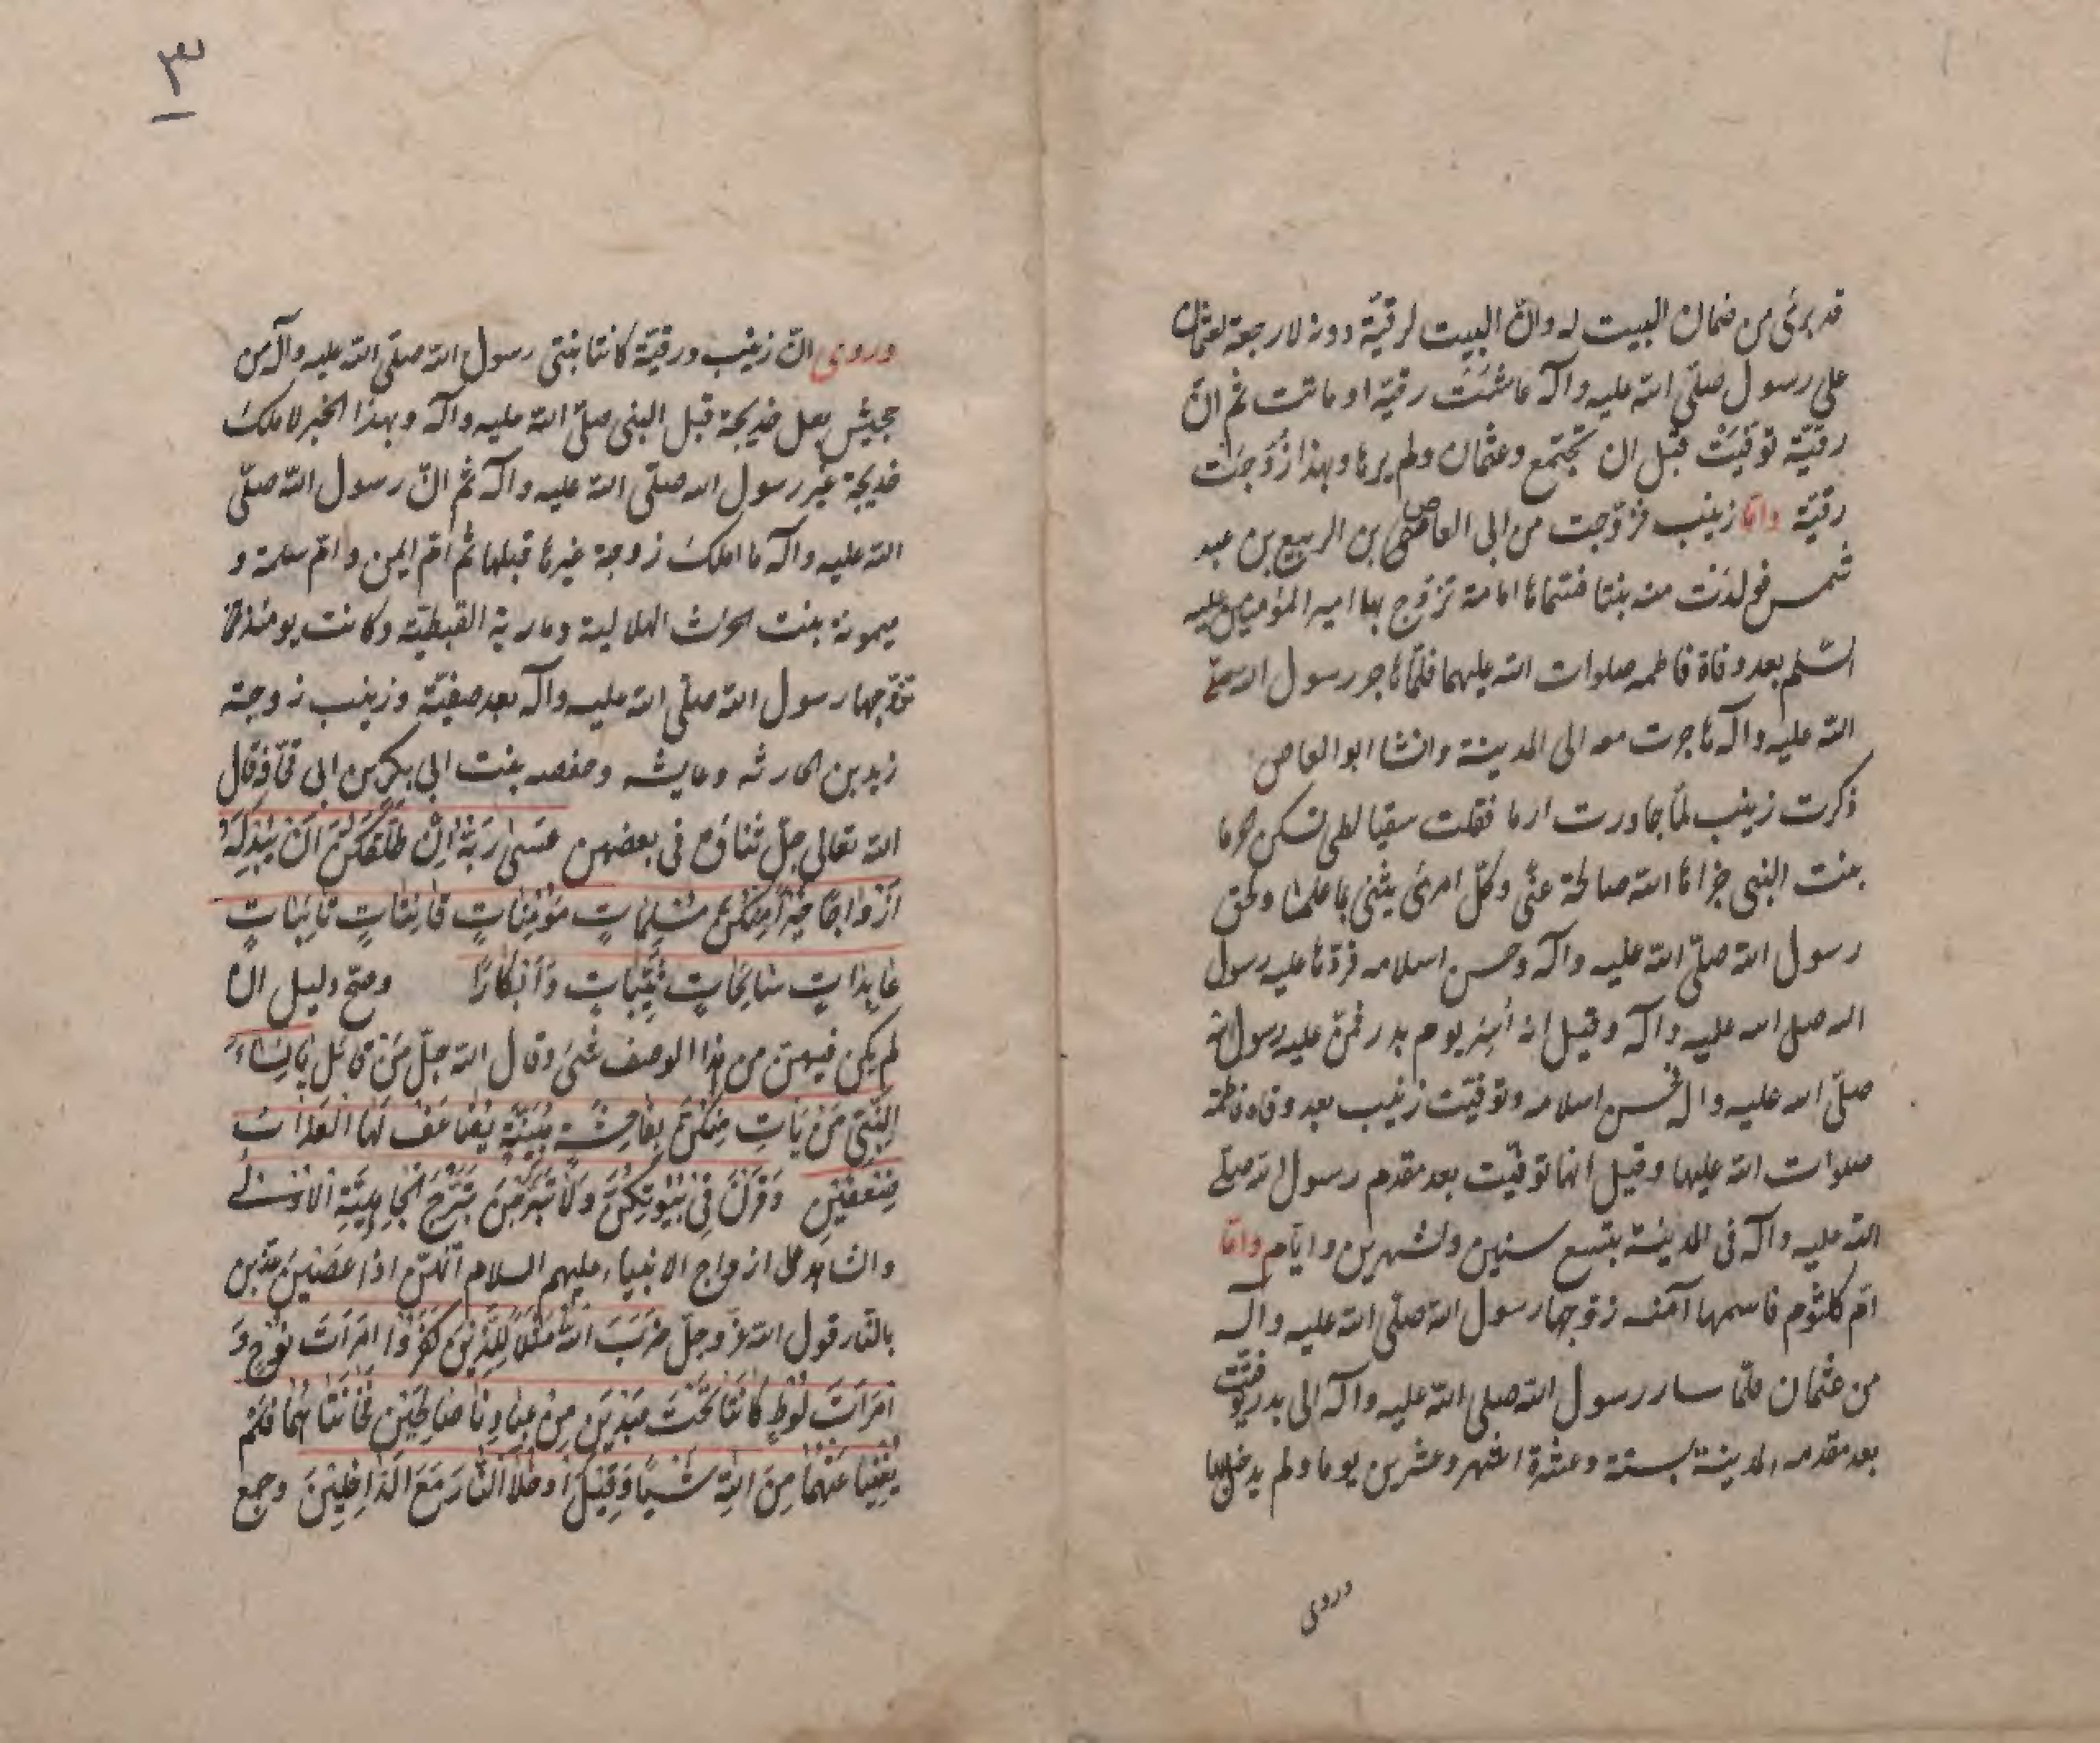 قد برئ من ضمان البيت له وانّ البيت لرقيّة دونه لا رجعة لعثمان
على رسول صلّى الله عليه وآله عاشت رقية او ماتت ثم انّ
رقيّة توفّيت قبل ان تجتمع وعثمان ولم يرها وبهذا زوّجت
رقيّة وامّا زينب فزوّجت من ابى العاص بن الربيع بن عبد
شمس فولدت منه بنتا فسماها امامة تزوّج بها امير المؤمنين عليه
السّلم بعد وفاة فاطمه صلوات الله عليهما فلمّا هاجر رسول الله صلّى
الله عليه وآله هاجرت معه الى المدينة وانشا ابو العاص
ذكرت زينب لمّا جاورت ارما فقلت سقيا لطى تسكن حرما
بنت النبى جزاها الله صالحة عنّى وكلّ امرئ يثنى بما علما ولحق
رسول الله صلّى الله عليه وآله وحسن اسلامه فردّها عليه رسول
الله صلى الله عليه وآله وقيل انه اُسِر يوم بدر فمنّ عليه رسول الله
صلّى الله عليه وآله فحسن اسلامه وتوفيّت زينب بعد وفاه فاطمة
صلوات الله عليها وقيل انها توفيّت بعد مقدم رسول الله صلّى
الله عليه وآله فى المدينة بتسع سنين وشهرين وايّام وامّا
امّ كلثوم فاسمها آمنه زوّجها رسول الله صلّى الله عليه وآله
من عثمان فلمّا سار رسول الله صلى الله عليه وآله الى بدر توفّيت
بعد مقدمه المدينة بسنة وعشرة اشهر وعشرين يوما ولم يدخل بها
وروى
٣
وروى انّ زينب ورقيّة كانتا بنتى رسول الله صلّى الله عليه وآله من
جحيش بعل خديجة قبل النبى صلّى الله عليه وآله وبهذا الخبر لا ملك
خديجة غير رسول الله صلّى الله عليه وآله ثم انّ رسول الله صلّى
الله عليه وآله ما املك زوجة غيرها قبلها ثم امّ ايمن وامّ سلمة و
ميمونة بنت الحرث الهلالية ومارية القبطيّه وكانت يومئذ
تزوّجها رسول الله صلّى الله عليه وآله بعد صفيّة وزينب زوجة
زيد بن الحارثه وعايشه وحفصه بنت ابى بكر بن ابى قحافة قال
الله تعالى جلّ ثناؤه فى بعضهن عَسَىٰ رَبُّهُ اِنْ طَلَّقَكُنَّ اَنْ يُبْدِلَهُ
اَزْوَاجًا خَيْرًا مِنْكُنَّ مُسْلِمَاتٍ مُؤْمِنَاتٍ قَانِتَاتٍ تَائِبَاتٍ
عَابِدَاتٍ سَائِحَاتٍ ثَيِّبَاتٍ وَاَبْكَارًا وصحّ دليل ان
لم يكن فيهنّ من هذا الوصف شئ وقال الله جلّ من قائل يَا نِسَاءَ
النَّبِيِّ مَنْ يَاتِ مِنْكُنَّ بِفَاحِشَةٍ مُبَيِّنَةٍ يُضَاعَفْ لَهَا الْعَذَابُ
ضِعْفَيْنِ وَقَرْنَ فِي بُيُوتِكُنَّ وَلَا تَبَرَّجْنَ تَبَرُّجَ الْجَاهِلِيَّةِ الْاُوْلىٰ
والشاهد على ازواج الانبياء عليهم السلام انّهنّ اذا عَصَيْنَ عذّبن
بالنّار قول الله عزّ وجلّ ضَرَبَ اللّٰهُ مَثَلًا لِلَّذِيْنَ كَفَرُوْا امْرَاَتَ نُوْحٍ وَ
امْرَاَتَ لُوْطٍ كَانَتَا تَحْتَ عَبْدَيْنِ مِنْ عِبَادِنَا صَالِحَيْنِ فَخَانَتَاهُمَا فَلَمْ
يُغْنِيَا عَنْهُمَا مِنَ اللّٰهِ شَيْئًا وَقِيْلَ ادْخُلَا النَّارَ مَعَ الدَّاخِلِيْنَ وجمع